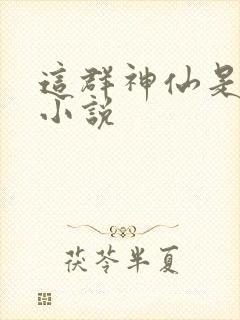 這群神仙是
小說
茯苓半夏